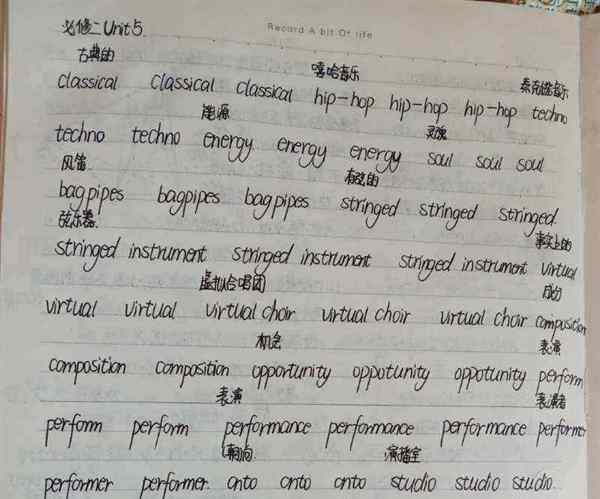 必修二 Unit 5.
Record A bit Of life
古典的 嘻哈音乐 泰克诺音乐
classical classical classical hip-hop hip-hop hip-hop techno
能源 灵魂
techno techno energy energy energy soul soul soul
风笛 有弦的
bagpipes bagpipes bagpipes stringed stringed stringed
弦乐器 事实上的
stringed instrument stringed instrument stringed instrument virtual
虚拟合唱团
virtual virtual virtual choir virtual choir virtual choir composition
机会 表演
composition composition opportunity oppotunity oppotunity perform
表演 表演者
perform perform performance performance performance performer
朝,向 演播室
performer performer onto onto onto studio studio studio